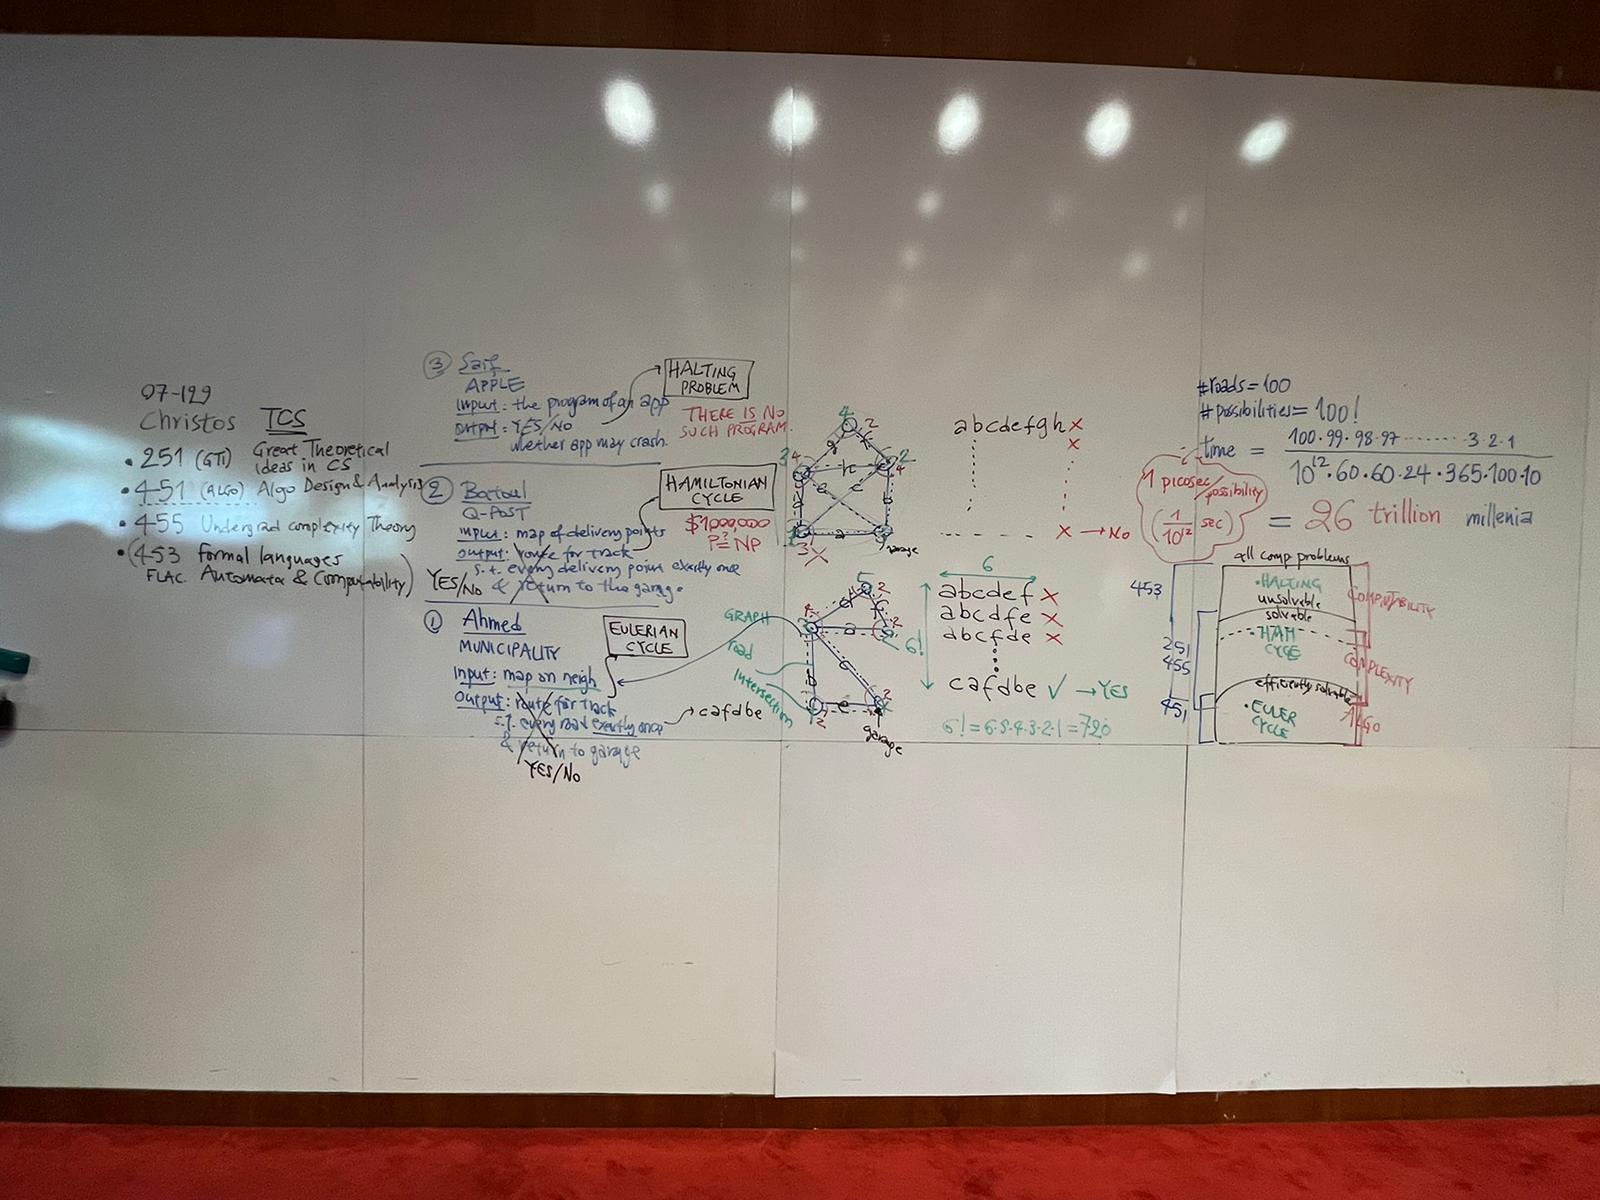 07-129
Christos TCS
• 251 (GTI) Great Theoretical
Ideas in CS
• 451 (ALGO) Algo Design & Analysis
• 455 Undergrad complexity Theory
• (453 Formal languages
FLAC. Automata & Computability)
③ Saif
APPLE
Input: the program of an app
Output: YES/NO
whether app may crash.
HALTING
PROBLEM
THERE IS NO
SUCH PROGRAM.
② Batoul
Q-POST
Input: map of delivery points
Output: route for track
s.t. every delivery point exactly once
YES/NO & return to the garage.
HAMILTONIAN
CYCLE
$1000,000
P ?= NP
① Ahmed
MUNICIPALITY
Input: map on neigh
Output: route for track
s.t. every road exactly once
& return to garage
YES/NO
EULERIAN
CYCLE
→ cafdbe
GRAPH
road
Intersection
garage
garage
abcdefgh x
x
x → No
6
abcdef x
abcdfe x
abcfde x
6!
cafdbe ✓ → YES
6! = 6·5·4·3·2·1 = 720
#roads = 100
#possibilities = 100!
time = 100·99·98·97········3·2·1
10^12·60·60·24·365·100·10
= 26 trillion millenia
1 picosec/possibility
(1/10^12 sec)
all comp problems
• HALTING
unsolvable
solvable
• HAM
CYCLE
efficiently solvable
• EULER
CYCLE
453
251
455
451
COMPUTABILITY
COMPLEXITY
ALGO